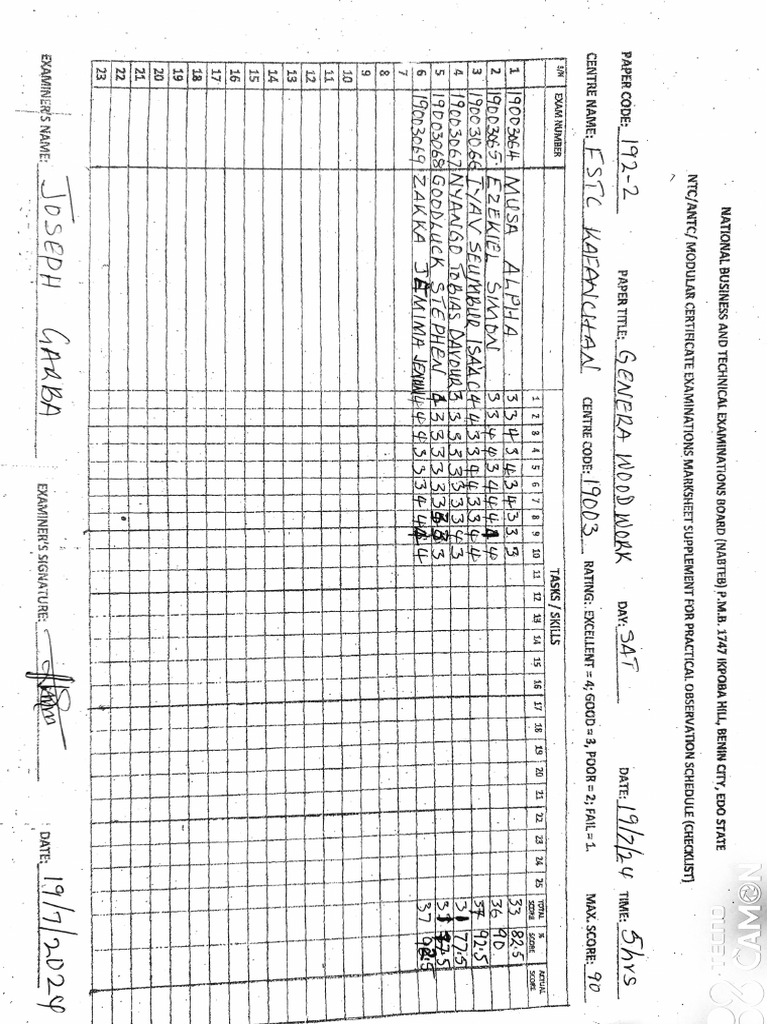 NATIONAL BUSINESS AND TECHNICAL EXAMINATIONS BOARD (NABTEB) P.M.B. 1747 IKPOBA HILL, BENIN CITY, EDO STATE
NTC/ANTC/ MODULAR CERTIFICATE EXAMINATIONS MARKSHEET SUPPLEMENT FOR PRACTICAL OBSERVATION SCHEDULE (CHECKLIST)
PAPER CODE: 192-2 PAPER TITLE: GENERA WOODWORK DAY: SAT DATE: 19/7/24 TIME: 5hrs
CENTRE NAME: FSTC KAFANCHAN CENTRE CODE: 19003 RATING: EXCELLENT = 4; GOOD = 3, POOR = 2; FAIL = 1. MAX. SCORE: 90
S/N EXAM NUMBER TASKS / SKILLS
1 2 3 4 5 6 7 8 9 10 11 12 13 14 15 16 17 18 19 20 21 22 23 24 25 TOTAL SCORE % SCORE ACTUAL SCORE
1 19003064 MUSA ALPHA 3 3 4 3 4 3 4 3 3 3 33 82.5
2 19003065. EZEKIEL SIMON 3 3 4 4 3 4 4 4 4 36 90
3 19003066 IYAV SEUMBUR ISAAC 4 4 3 3 4 4 3 3 4 4 37 92.5
4 19003067 NYANGO TOBIAS DAVOUR 3 3 3 3 3 3 3 3 4 3 31 77.5
5 19003068 GOODLUCK STEPHEN 3 3 3 3 3 3 3
6 19003069 ZAKKA JEMIMA 4 4 4 3 3 3 4 4 4 37
7
8
9
10
11
12
13
14
15
16
17
18
19
20
21
22
23
EXAMINER'S NAME: JOSEPH GARBA EXAMINER'S SIGNATURE: DATE: 19/7/2024